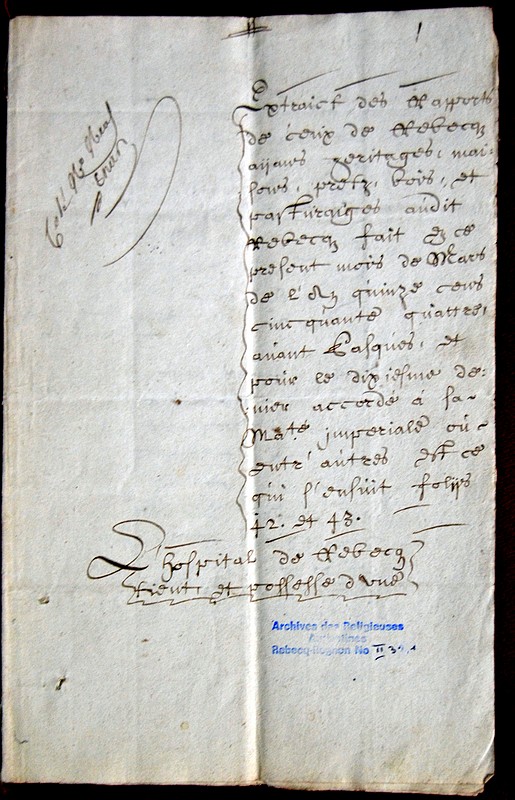 1
Extraict des Rapports
de ceux de Rebecq
aijans heritages, mai-
sons, pretz, bois, et
pasturaiges audit
Rebecq fait en ce
present mois de Mars
de l'an quinze cens
cincquante quattre,
avant Pasques, et
pour le dixiesme de-
nier accordé a sa
Ma.té imperiale ou
entr' autres est ce
qui s'ensuit folijs
42. et 43.
L'hospital de Rebecq
tient et possesse d'une
Archives des Religieuses
Augustines
Rebecq-Rognon No II